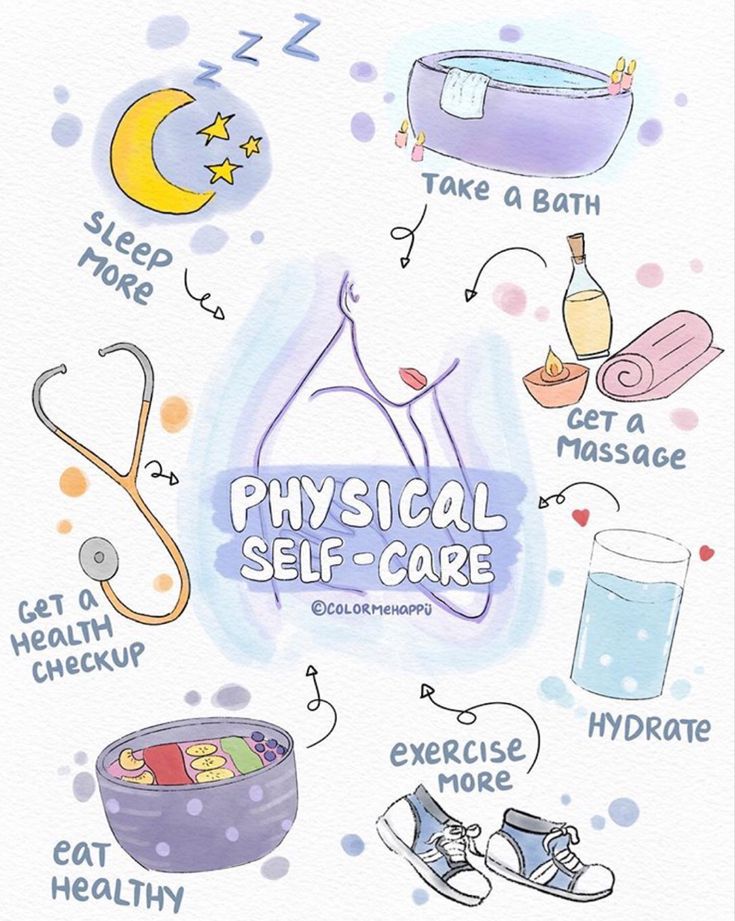 z z z
SLEEP
MORE
TAKE a BATH
GET a
MASSAGE
PHYSICAL
SELF-CARE
©COLORMEHAPPÜ
GET a
HEALTH
CHECKUP
HYDRATE
EXERCISE
MORE
eat
HEALTHY